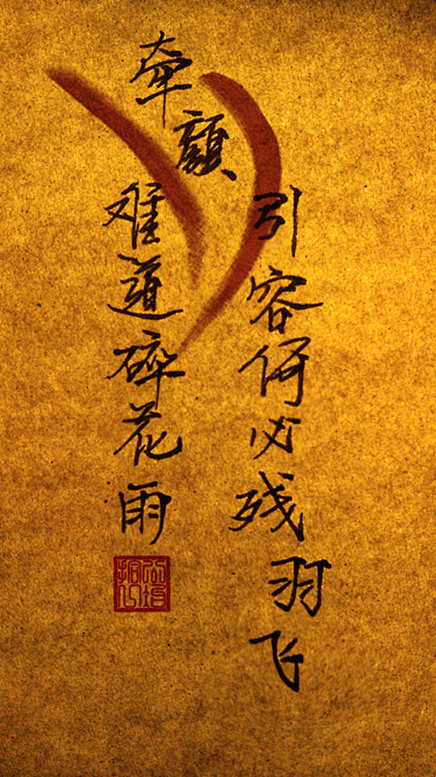 牵颜
引容何必残羽飞
难道碎花雨